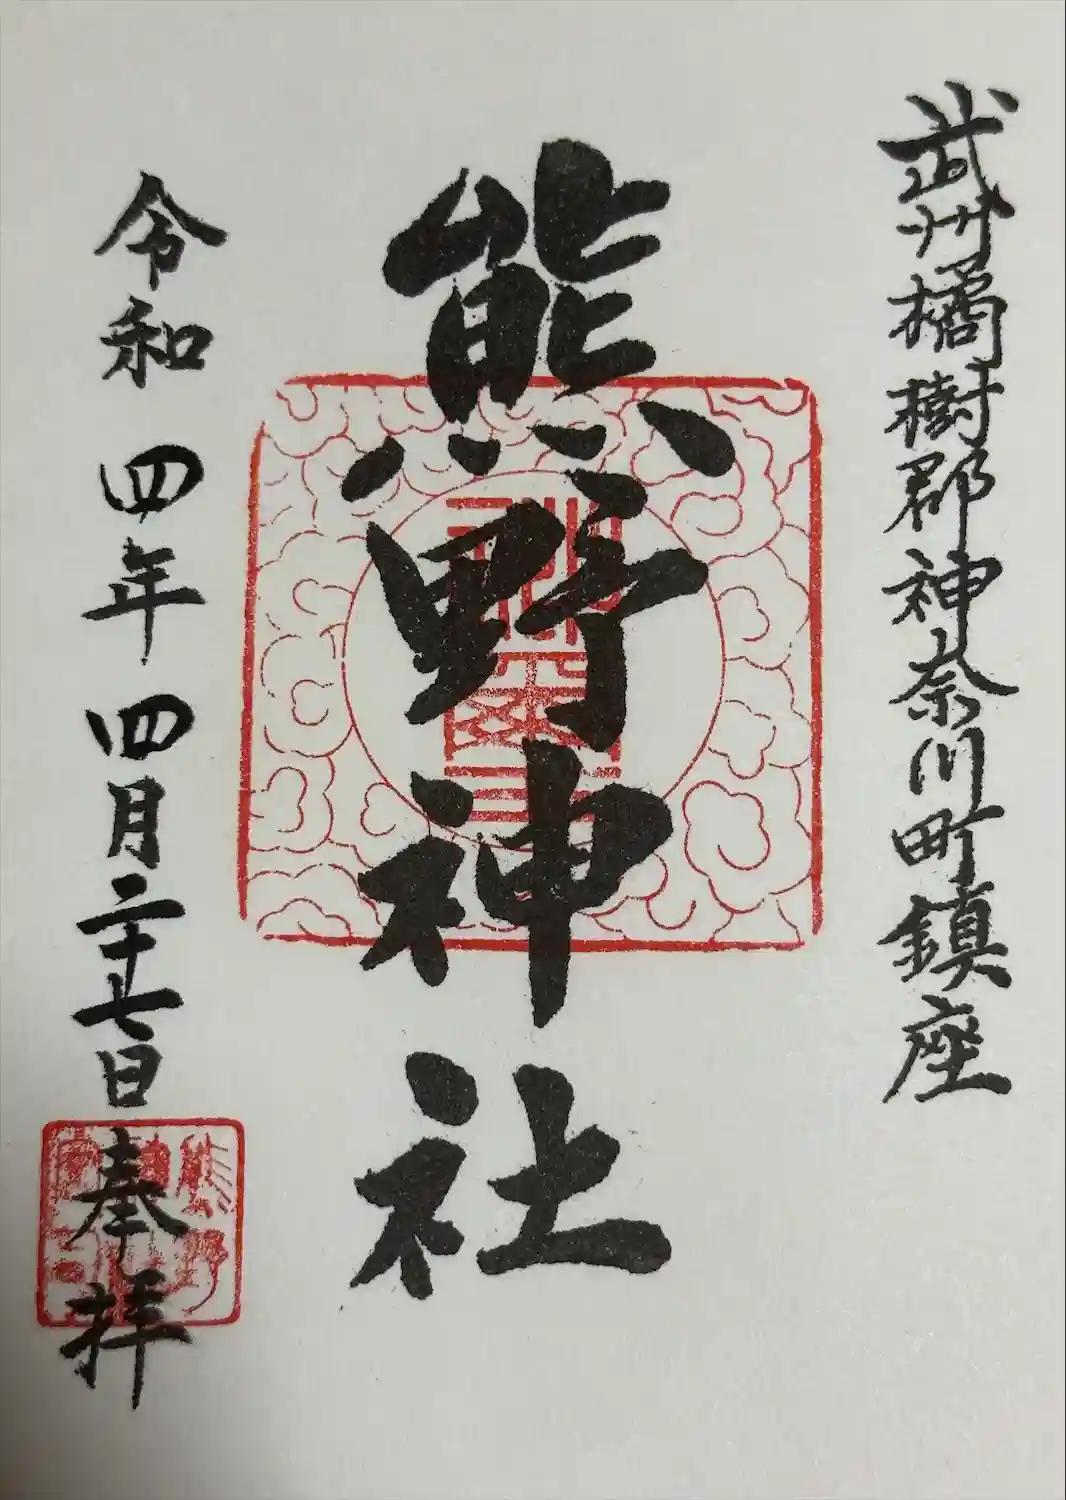 武州橘樹郡神奈川町鎮座
熊野神社
令和四年四月二十七日奉拝
熊野